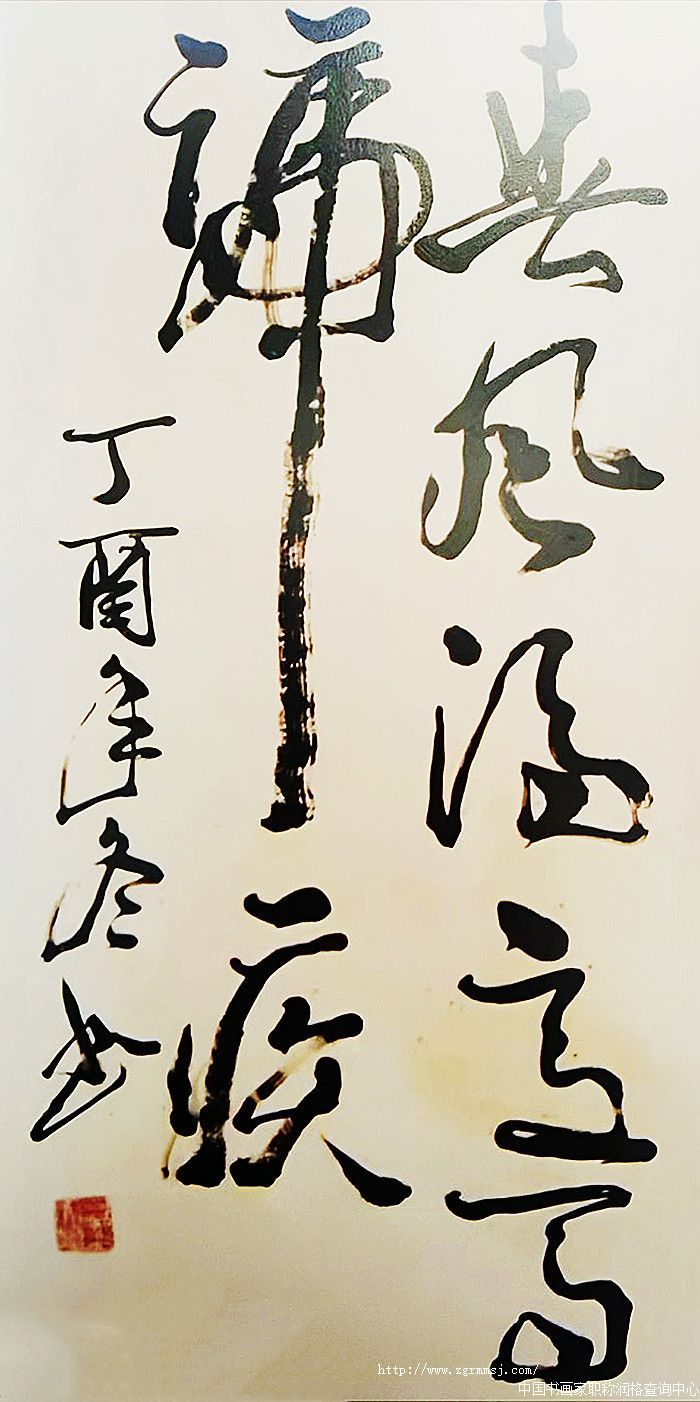 春风得意马
蹄疾
丁酉年冬书
http://www.zgrmmsj.com/
中国书画家职称润格查询中心